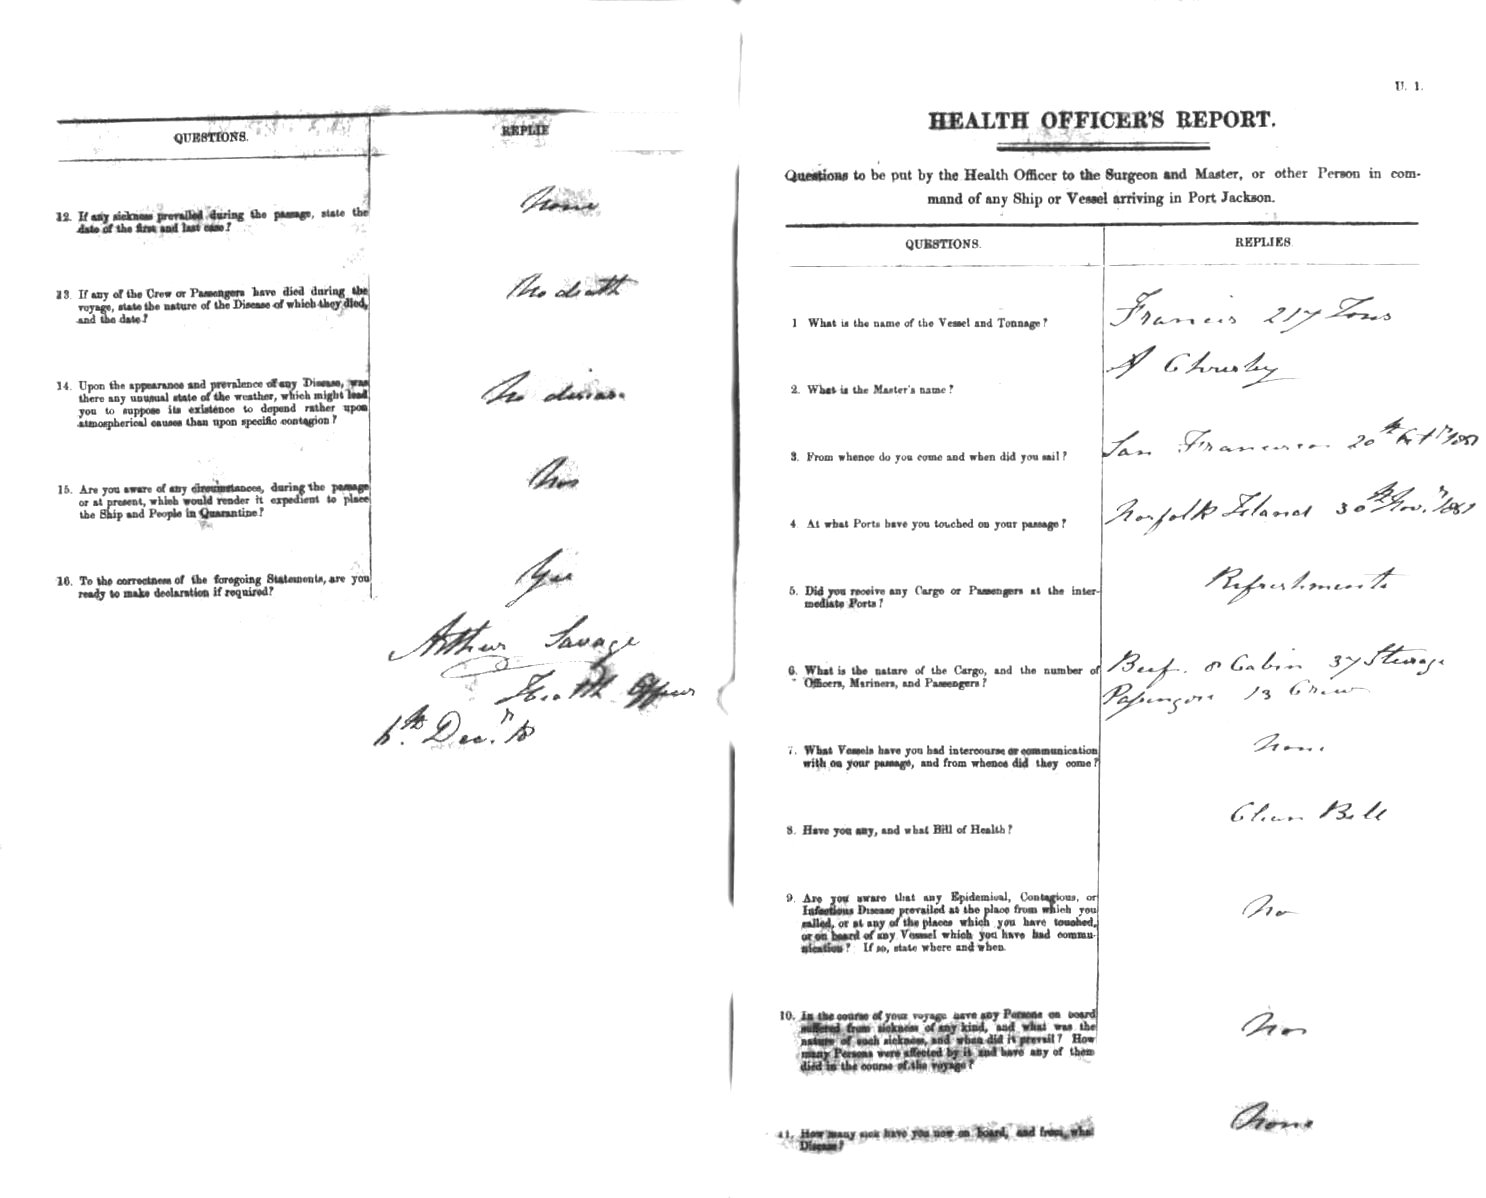 QUESTIONS.
REPLIE
12. If any sickness prevailed during the passage, state the
date of the first and last case?
None
13. If any of the Crew or Passengers have died during the
voyage, state the nature of the Disease of which they died,
and the date?
No death
14. Upon the appearance and prevalence of any Disease, was
there any unusual state of the weather, which might lead
you to suppose its existence to depend rather upon
atmospherical causes than upon specific contagion?
No diseas
15. Are you aware of any circumstances, during the passage
or at present, which would render it expedient to place
the Ship and People in Quarantine?
No
16. To the correctness of the foregoing Statements, are you
ready to make declaration if required?
Yes
Arthur Savage
Health Officer
6th Decr.
U. 1.
HEALTH OFFICER'S REPORT.
Questions to be put by the Health Officer to the Surgeon and Master, or other Person in com-
mand of any Ship or Vessel arriving in Port Jackson.
QUESTIONS.
REPLIES
1 What is the name of the Vessel and Tonnage?
Francis 217 Tons
2. What is the Master's name?
A
3. From whence do you come and when did you sail?
San Francisco 20th
4. At what Ports have you touched on your passage?
Norfolk Island 30th Novr.
5. Did you receive any Cargo or Passengers at the inter-
mediate Ports?
Refreshments
6. What is the nature of the Cargo, and the number of
Officers, Mariners, and Passengers?
Beef. 8 Cabin 37 Steerage
Passengers 13 Crew
7. What Vessels have you had intercourse or communication
with on your passage, and from whence did they come?
None
8. Have you any, and what Bill of Health?
Clean Bill
9. Are you aware that any Epidemical, Contagious, or
Infectious Disease prevailed at the place from which you
sailed, or at any of the places which you have touched,
or on board of any Vessel which you have had commu-
nication? If so, state where and when.
No
10. In the course of your voyage have any Persons on board
suffered from sickness of any kind, and what was the
nature of such sickness, and when did it prevail? How
many Persons were affected by it and have any of them
died in the course of the voyage?
No
11. How many sick have you now on board, and from what
Disease?
None